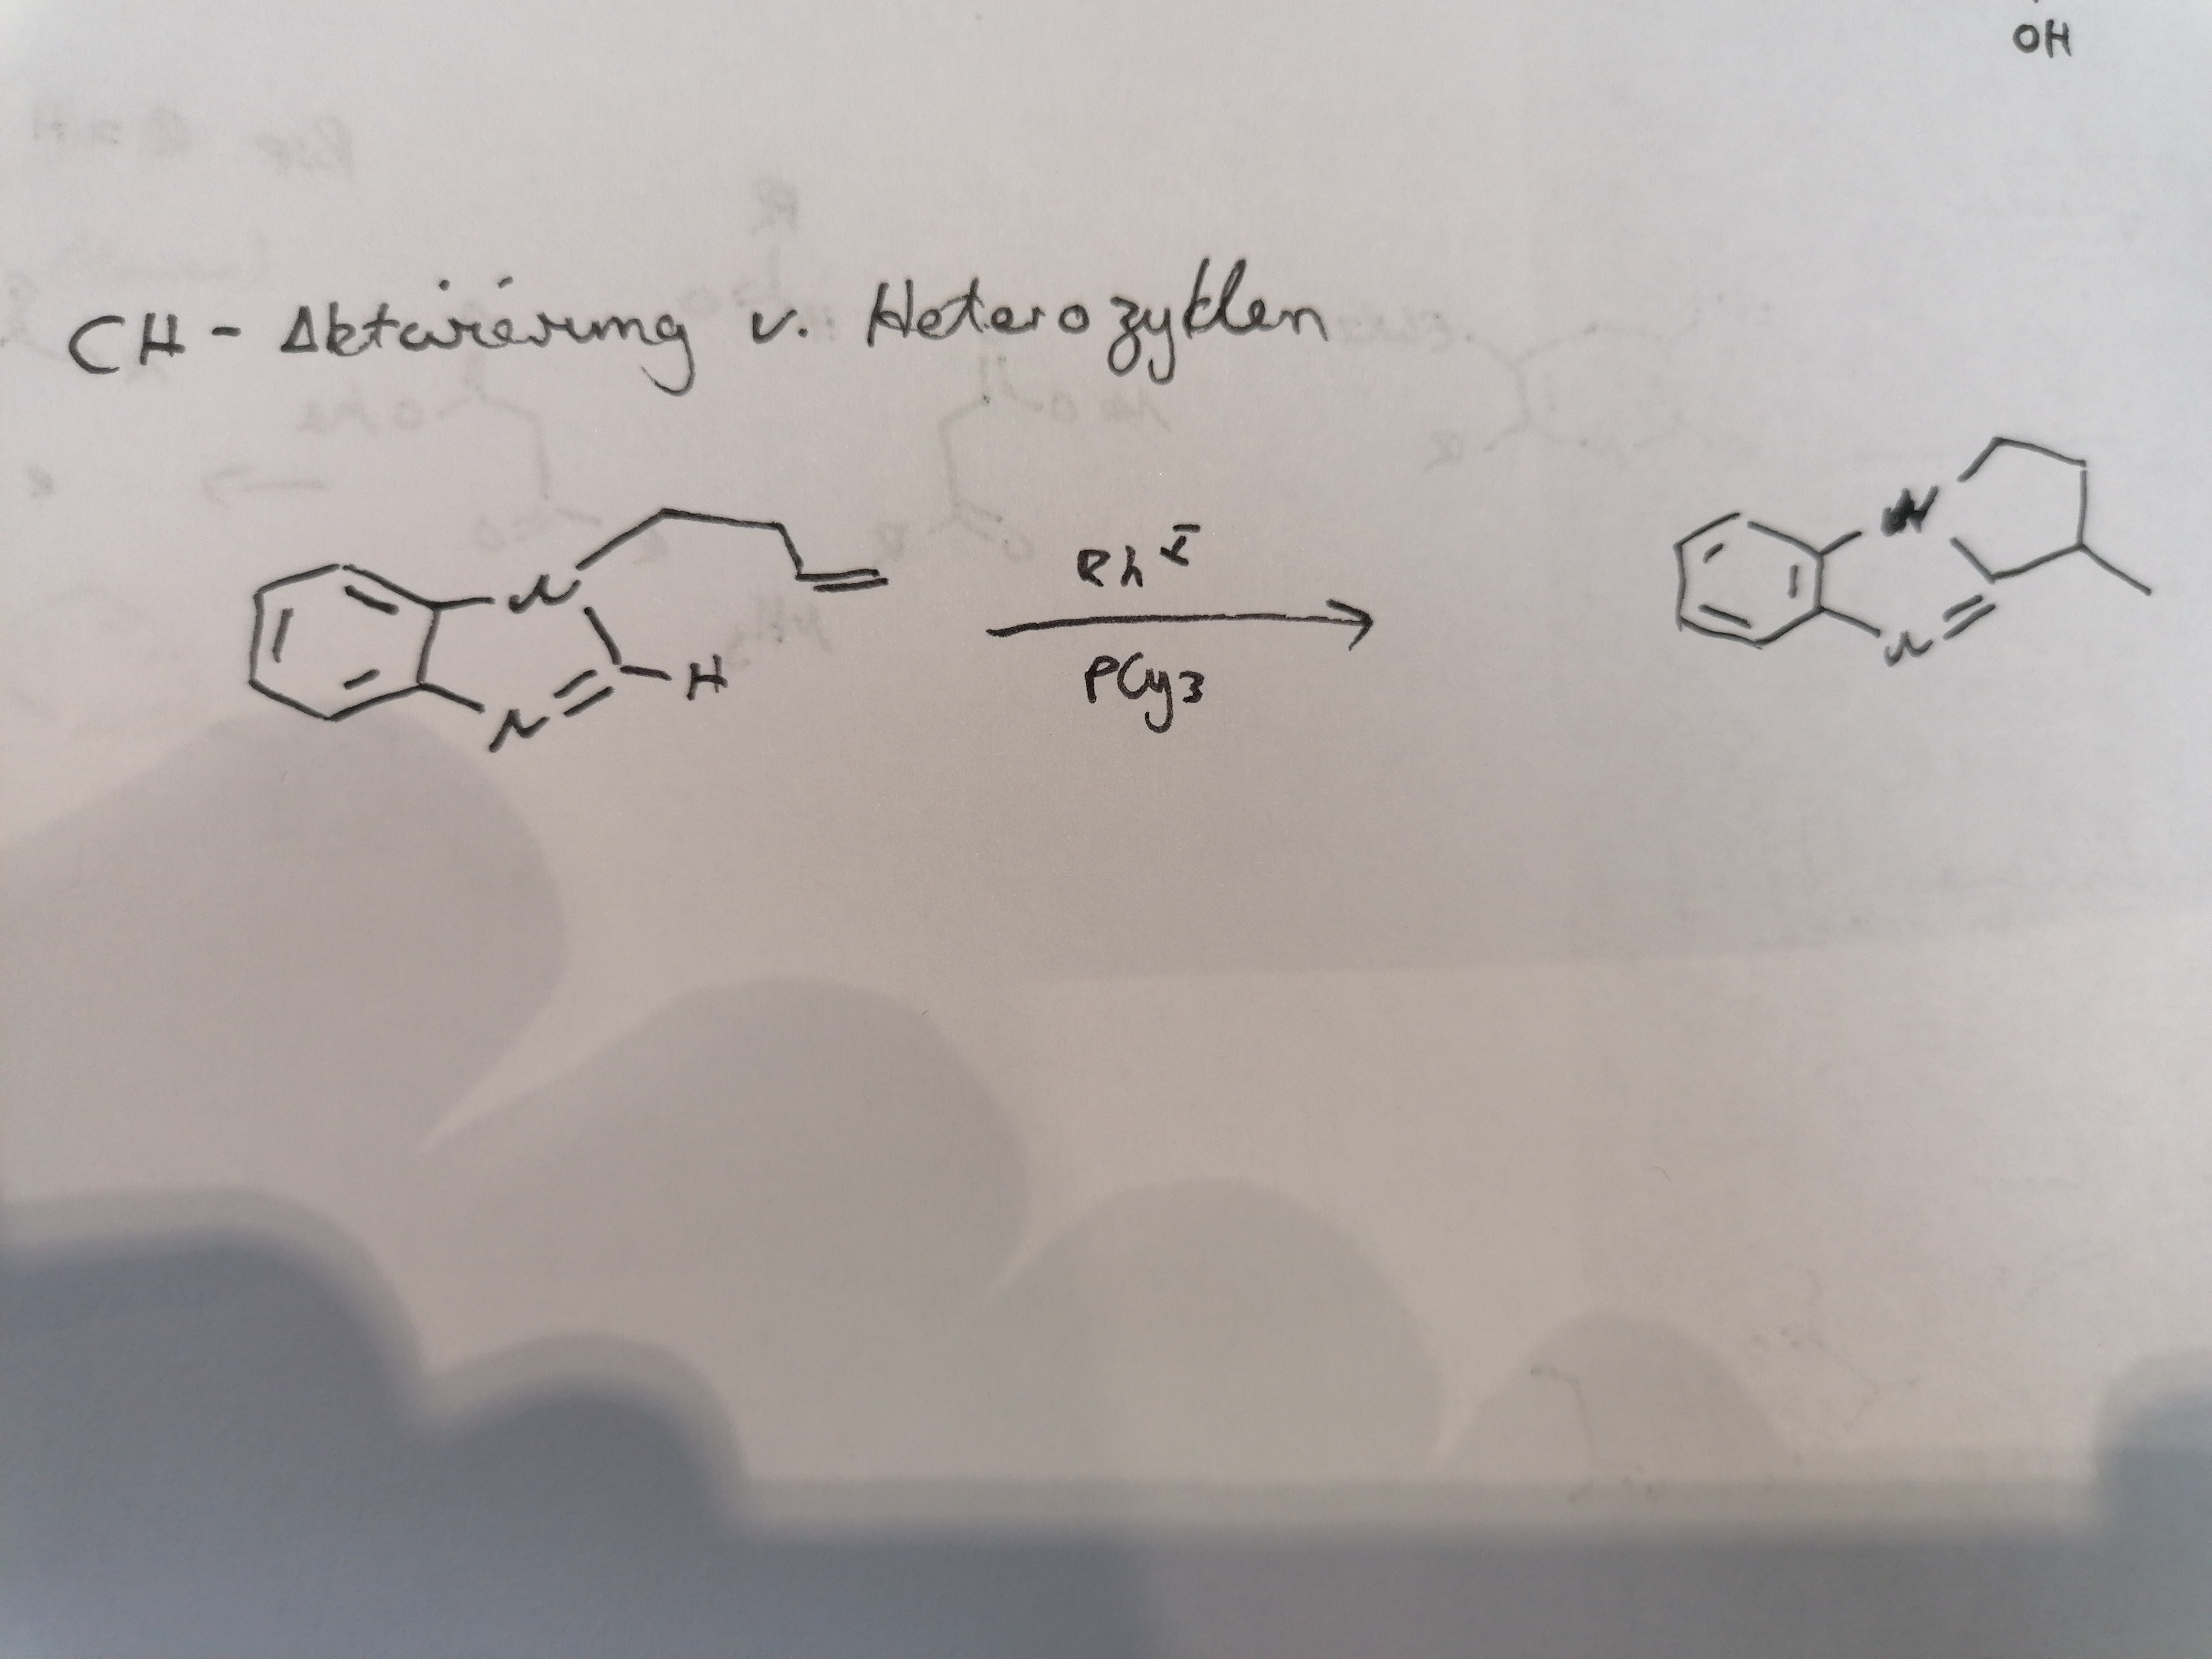 OH
CH-Aktivierung v. Heterozyklen
N
H
N
Rh I
PCy3
N
N